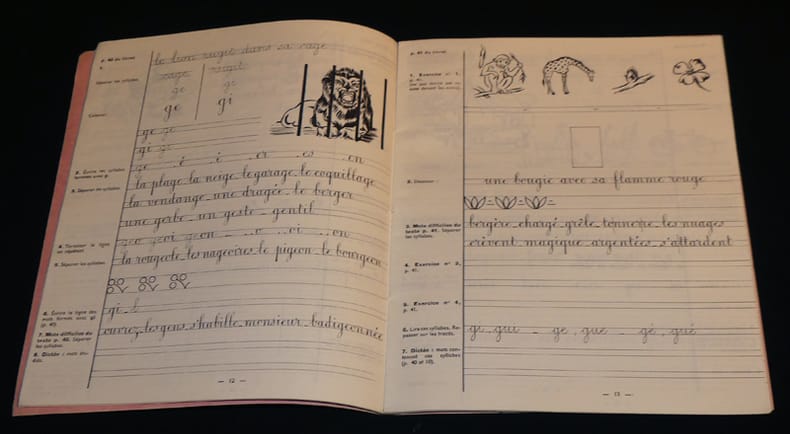 p. 40 du livre.
le lion rugit dans sa cage
1.
Séparer les syllabes.
cage rugit
ge gi
Colorier.
ge gi
ge ge
gi gi
2. Écrire les syllabes formées avec g.
ge é i er es on
3. Séparer les syllabes.
la plage la neige le garage le coquillage
la vendange une dragée le berger
une gerbe un geste gentil
4. Terminer la ligne en répétant.
geo geai geon o ai on
5. Séparer les syllabes.
la rougeole les nageoires le pigeon le bourgeon
6. Écrire la ligne des mots formés avec gi (p. 40).
gi
7. Mots difficiles du texte p. 40. Séparer les syllabes.
ouvrez les gens s'habille monsieur badigeonnée
8. Dictée : mots étudiés.
— 12 —
p. 41 du livre.
1. Exercice n° 1, p. 41.
2. Dessiner :
une bougie avec sa flamme rouge
3. Mots difficiles du texte p. 41. Séparer les syllabes.
bergère chargé grêle tonnerre les nuages
crèvent magique argentées s'attardent
4. Exercice n° 3, p. 41.
5. Exercice n° 4, p. 41.
6. Lire ces syllabes. Repasser sur les tracés.
gi gui ge gue gé gué
7. Dictée : mots contenant ces syllabes (p. 40 et 10).
— 13 —